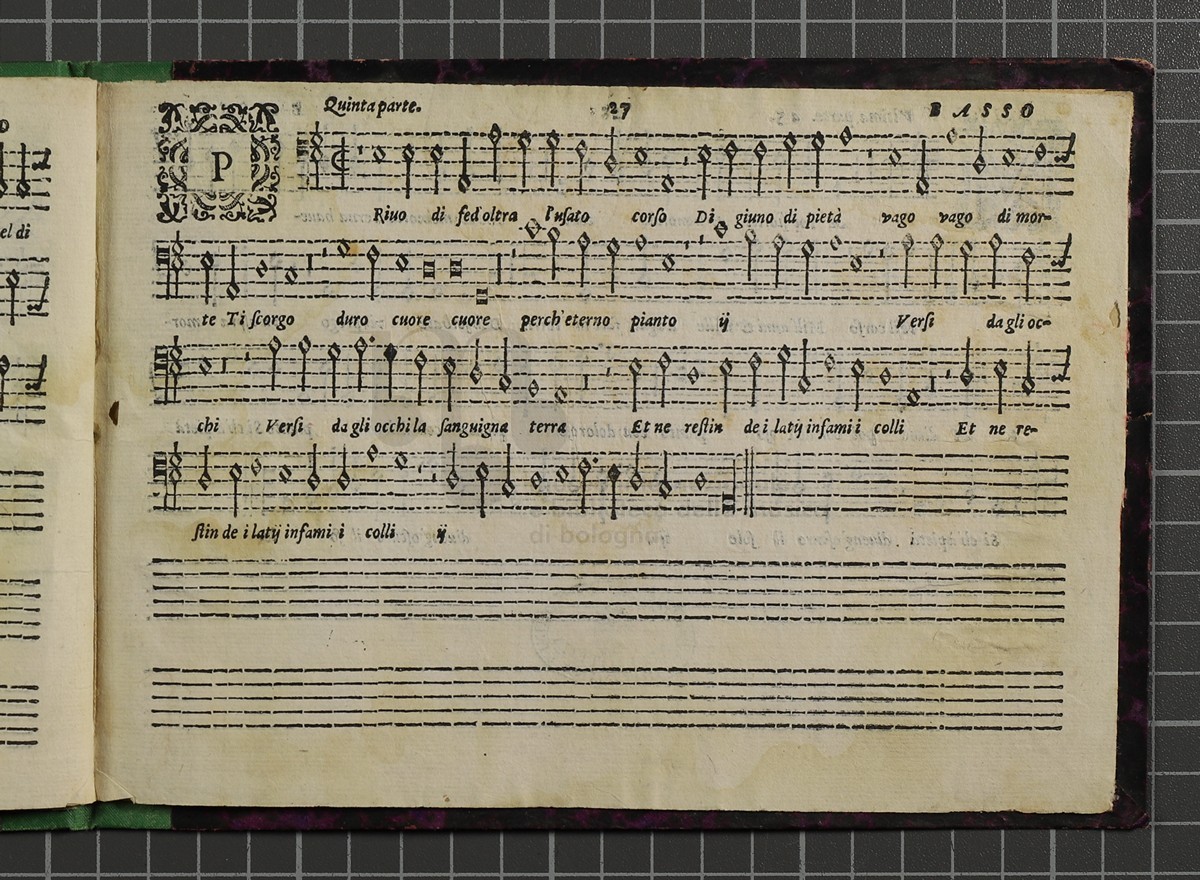 Quinta parte. 27 BASSO
P
Riuo di fed'oltra l'uſato corſo Di giuno di pietà vago vago di mor-
el di
te Ti ſcorgo duro cuore cuore perch'eterno pianto ij Verſi da gli oc-
chi Verſi da gli occhi la ſanguigna terra Et ne reſtin de i latij infami i colli Et ne re-
ſtin de i latij infami i colli ij
di bologna